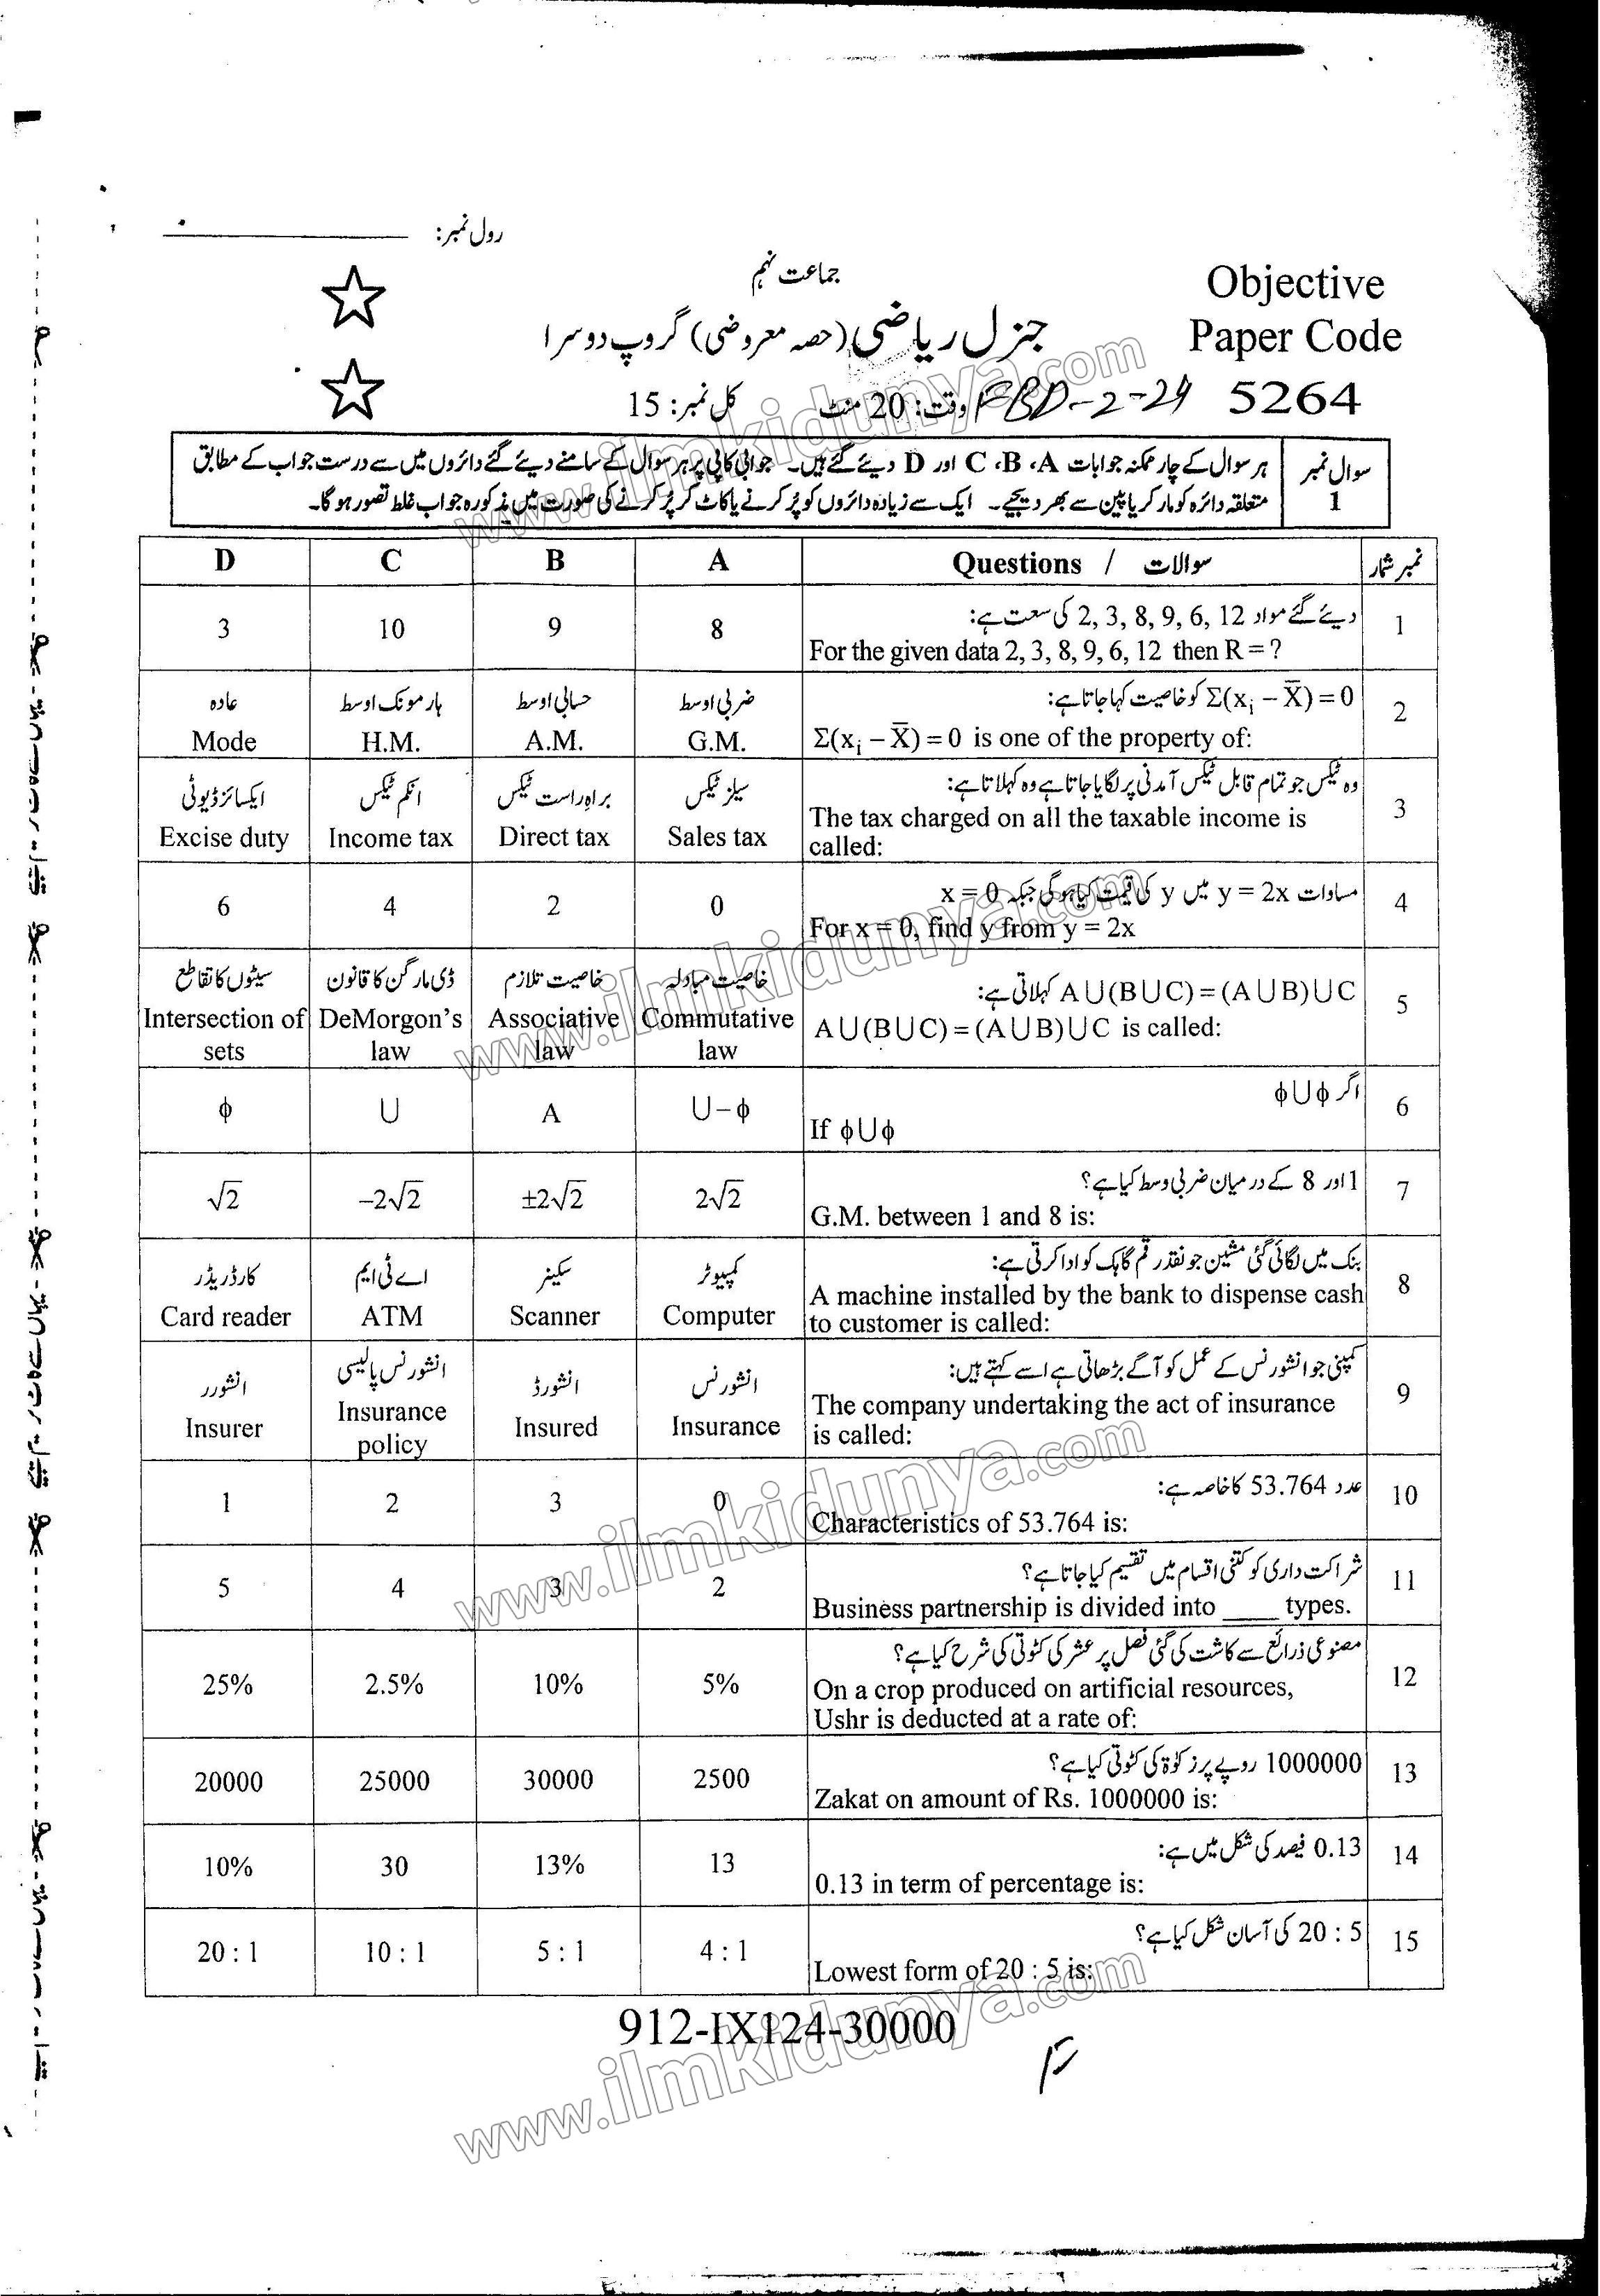 رول نمبر:
جماعت نہم
Objective
Paper Code
5264
جنرل ریاضی (حصہ معروضی) گروپ دوسرا
FBD-2-24
وقت: 20 منٹ
کل نمبر: 15
سوال نمبر 1
ہر سوال کے چار ممکنہ جوابات A، B، C اور D دیئے گئے ہیں۔ جوابی کاپی پر ہر سوال کے سامنے دیئے گئے دائروں میں سے درست جواب کے مطابق
متعلقہ دائرہ کو مارکر یا پین سے بھر دیجیے۔ ایک سے زیادہ دائروں کو پُر کرنے یا کاٹ کر پُر کرنے کی صورت میں مذکورہ جواب غلط تصور ہوگا۔
نمبر شمار سوالات / Questions A B C D
1 دیئے گئے مواد 2, 3, 8, 9, 6, 12 کی سعت ہے:
For the given data 2, 3, 8, 9, 6, 12 then R = ?
8 9 10 3
2 Σ(xᵢ – X̅) = 0 کو خاصیت کہا جاتا ہے:
Σ(xᵢ – X̅) = 0 is one of the property of:
ضربی اوسط حسابی اوسط ہارمونک اوسط عادہ
G.M. A.M. H.M. Mode
3 وہ ٹیکس جو تمام قابل ٹیکس آمدنی پر لگایا جاتا ہے وہ کہلاتا ہے:
The tax charged on all the taxable income is
called:
سیلز ٹیکس براہِ راست ٹیکس انکم ٹیکس ایکسائز ڈیوٹی
Sales tax Direct tax Income tax Excise duty
4 مساوات y = 2x میں y کی قیمت کیا ہوگی جبکہ x = 0
For x = 0, find y from y = 2x
0 2 4 6
5 A∪(B∪C)=(A∪B)∪C کہلاتی ہے:
A∪(B∪C)=(A∪B)∪C is called:
خاصیت مبادلہ خاصیت تلازم ڈی مارگن کا قانون سیٹوں کا تقاطع
Commutative law Associative law DeMorgon's law Intersection of sets
6 اگر ϕ∪ϕ
If ϕ∪ϕ
∪–ϕ A ∪ ϕ
7 1 اور 8 کے درمیان ضربی وسط کیا ہے؟
G.M. between 1 and 8 is:
2√2 ±2√2 –2√2 √2
8 بنک میں لگائی گئی مشین جو نقد رقم گاہک کو ادا کرتی ہے:
A machine installed by the bank to dispense cash
to customer is called:
کمپیوٹر سکینر اے ٹی ایم کارڈ ریڈر
Computer Scanner ATM Card reader
9 کمپنی جو انشورنس کے عمل کو آگے بڑھاتی ہے اسے کہتے ہیں:
The company undertaking the act of insurance
is called:
انشورنس انشورڈ انشورنس پالیسی انشورر
Insurance Insured Insurance policy Insurer
10 عدد 53.764 کا خاصہ ہے:
Characteristics of 53.764 is:
0 3 2 1
11 شراکت داری کو کتنی اقسام میں تقسیم کیا جاتا ہے؟
Business partnership is divided into ____ types.
2 3 4 5
12 مصنوعی ذرائع سے کاشت کی گئی فصل پر عشر کی کٹوتی کی شرح کیا ہے؟
On a crop produced on artificial resources,
Ushr is deducted at a rate of:
5% 10% 2.5% 25%
13 1000000 روپے پر زکوٰۃ کی کٹوتی کیا ہے؟
Zakat on amount of Rs. 1000000 is:
2500 30000 25000 20000
14 0.13 فیصد کی شکل میں ہے:
0.13 in term of percentage is:
13 13% 30 10%
15 20 : 5 کی آسان شکل کیا ہے؟
Lowest form of 20 : 5 is:
4 : 1 5 : 1 10 : 1 20 : 1
912-IX124-30000
www.ilmkidunya.com
www.ilmkidunya.com
www.ilmkidunya.com
www.ilmkidunya.com